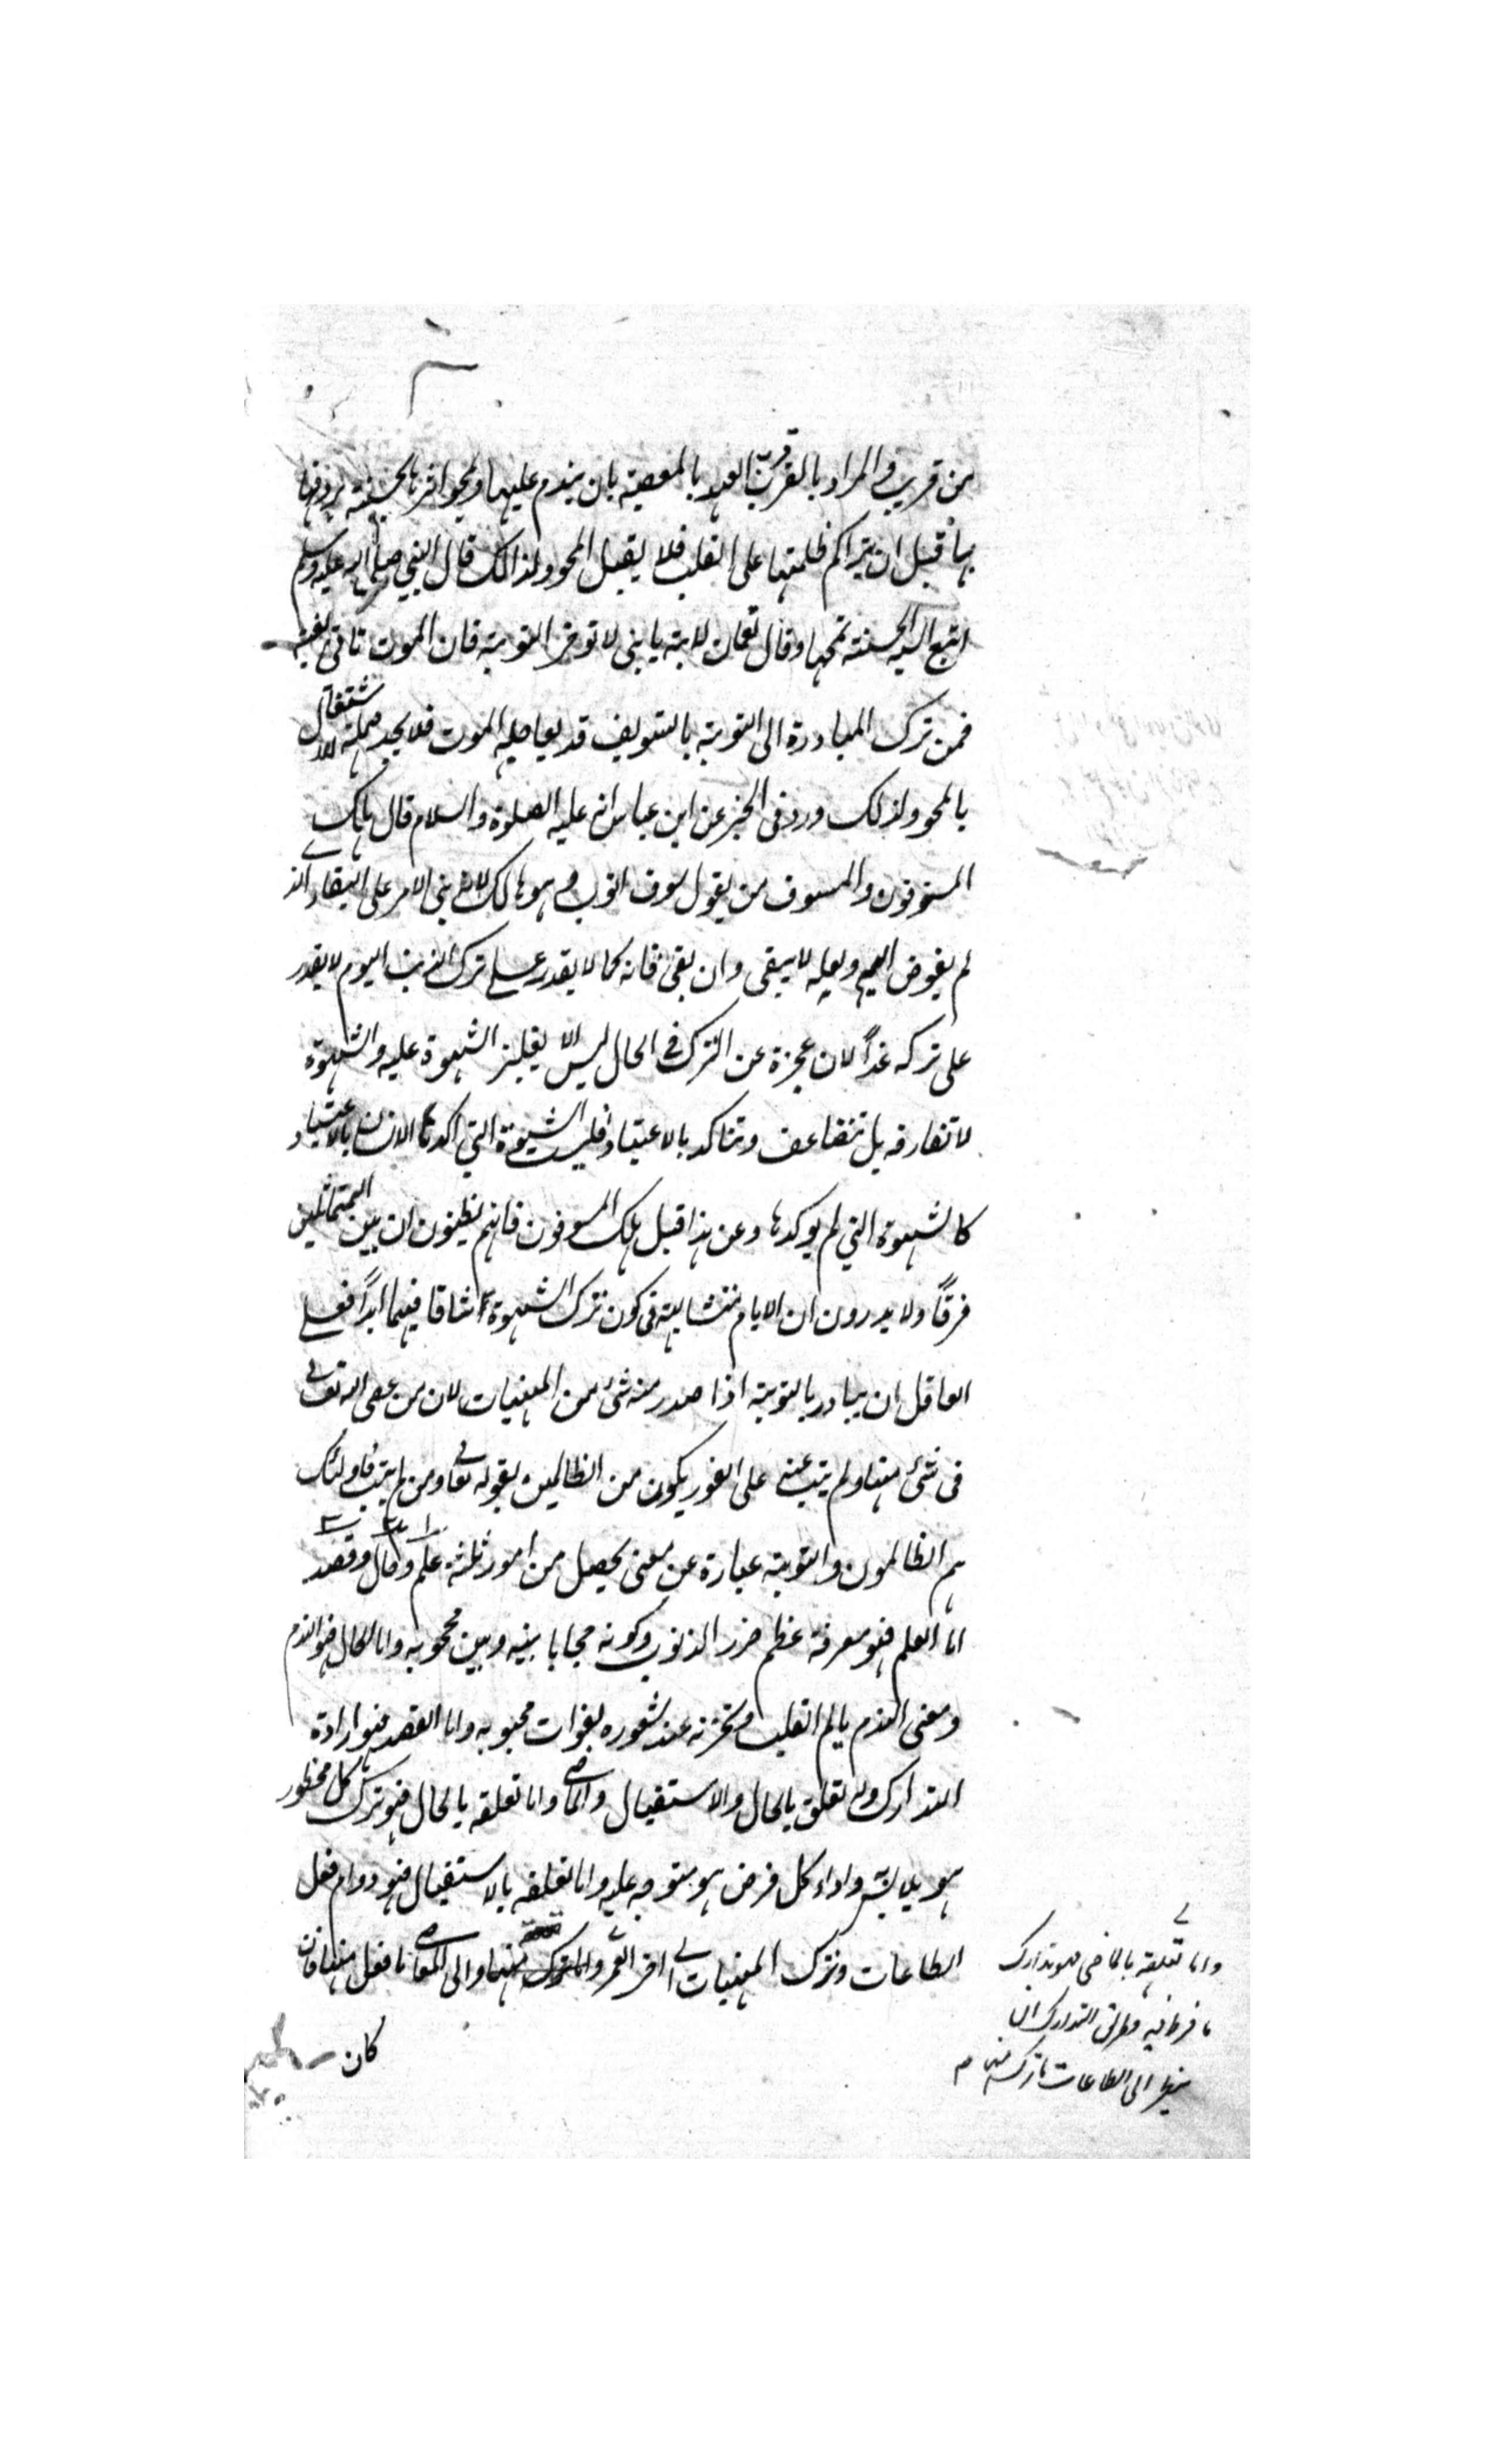 من قريب والمراد بالقرب قرب العهد بالمعصية بان يندم عليها ويمحو اثرها بحسنة يردفها
بها قبل ان يتراكم ظلمتها على القلب فلا يقبل المحو ولذالك قال النبي صلى الله عليه وسلم
اتبع السيئة الحسنة تمحها وقال لقمان لابنه يا بنى لا توخر التوبة فان الموت تاتى بغتة
فمن ترك المبادرة الى التوبة بالتسويف قد يعاجله الموت فلا يجد مهلة للاشتغال
بالمحو ولذلك ورد فى الخبر عن ابن عباس انه عليه الصلوة والسلام قال هلك
المسوفون والمسوف من يقول سوف اتوب وهو هالك لانه بنى الامر على البقاء الذے
لم يفوض اليه ولعله لا يبقى وان بقى فانه كما لا يقدر على ترك الذنب اليوم لا يقدر
على تركه غداً لان عجزه عن الترك فى الحال ليس الا لغلبة الشهوة عليه والشهوة
لا تفارقه بل تتضاعف وتتاكد بالاعتياد فليست الشهوة التى اكدها الانسان بالاعتياد
كالشهوة التي لم يوكدها وعن هذا قيل هلك المسوفون فانهم يظنون ان بين المتماثلين
فرقاً ولا يدرون ان الايام متشابهة فى كون ترك الشهوة شاقا فيها ابداً فعلى
العاقل ان يبادر بالتوبة اذا صدر منه شئ من المنهيات لان من عصى الله تعالى
فى شئ منها ولم يتب عنه على الفور يكون من الظالمين بقوله تعالى ومن لم يتب فاولئك
هم الظالمون والتوبة عبارة عن معنى يحصل من امور ثلثة علم وحال وقصد
اما العلم فهو معرفة عظم ضرر الذنوب وكونه حجابا بينه وبين محبوبه واما الحال فهو الندم
ومعنى الندم تالم القلب وتحزنه عند شعوره بفوات محبوبه واما القصد فهو ارادة
التدارك وله تعلق بالحال والاستقبال والماضى واما تعلقه بالحال فهو ترك كل محظور
هو ملابسه واداء كل فرض هو متوجه عليه واما تعلقه بالاستقبال فهو دوام فعل
الطاعات وترك المنهيات الى اخر العمر والى المعاصى ما فعل منها فان
واما تعلقه بالماضى فهو تدارك
ما فرط فيه وطريق التدارك ان
ينظر الى الطاعات ما ترك منها
كان